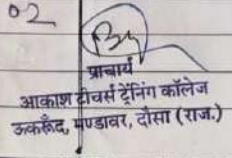 02
प्राचार्य
आकाश टीचर्स ट्रेनिंग कॉलेज
उकरूँद, मण्डावर, दौसा (राज.)